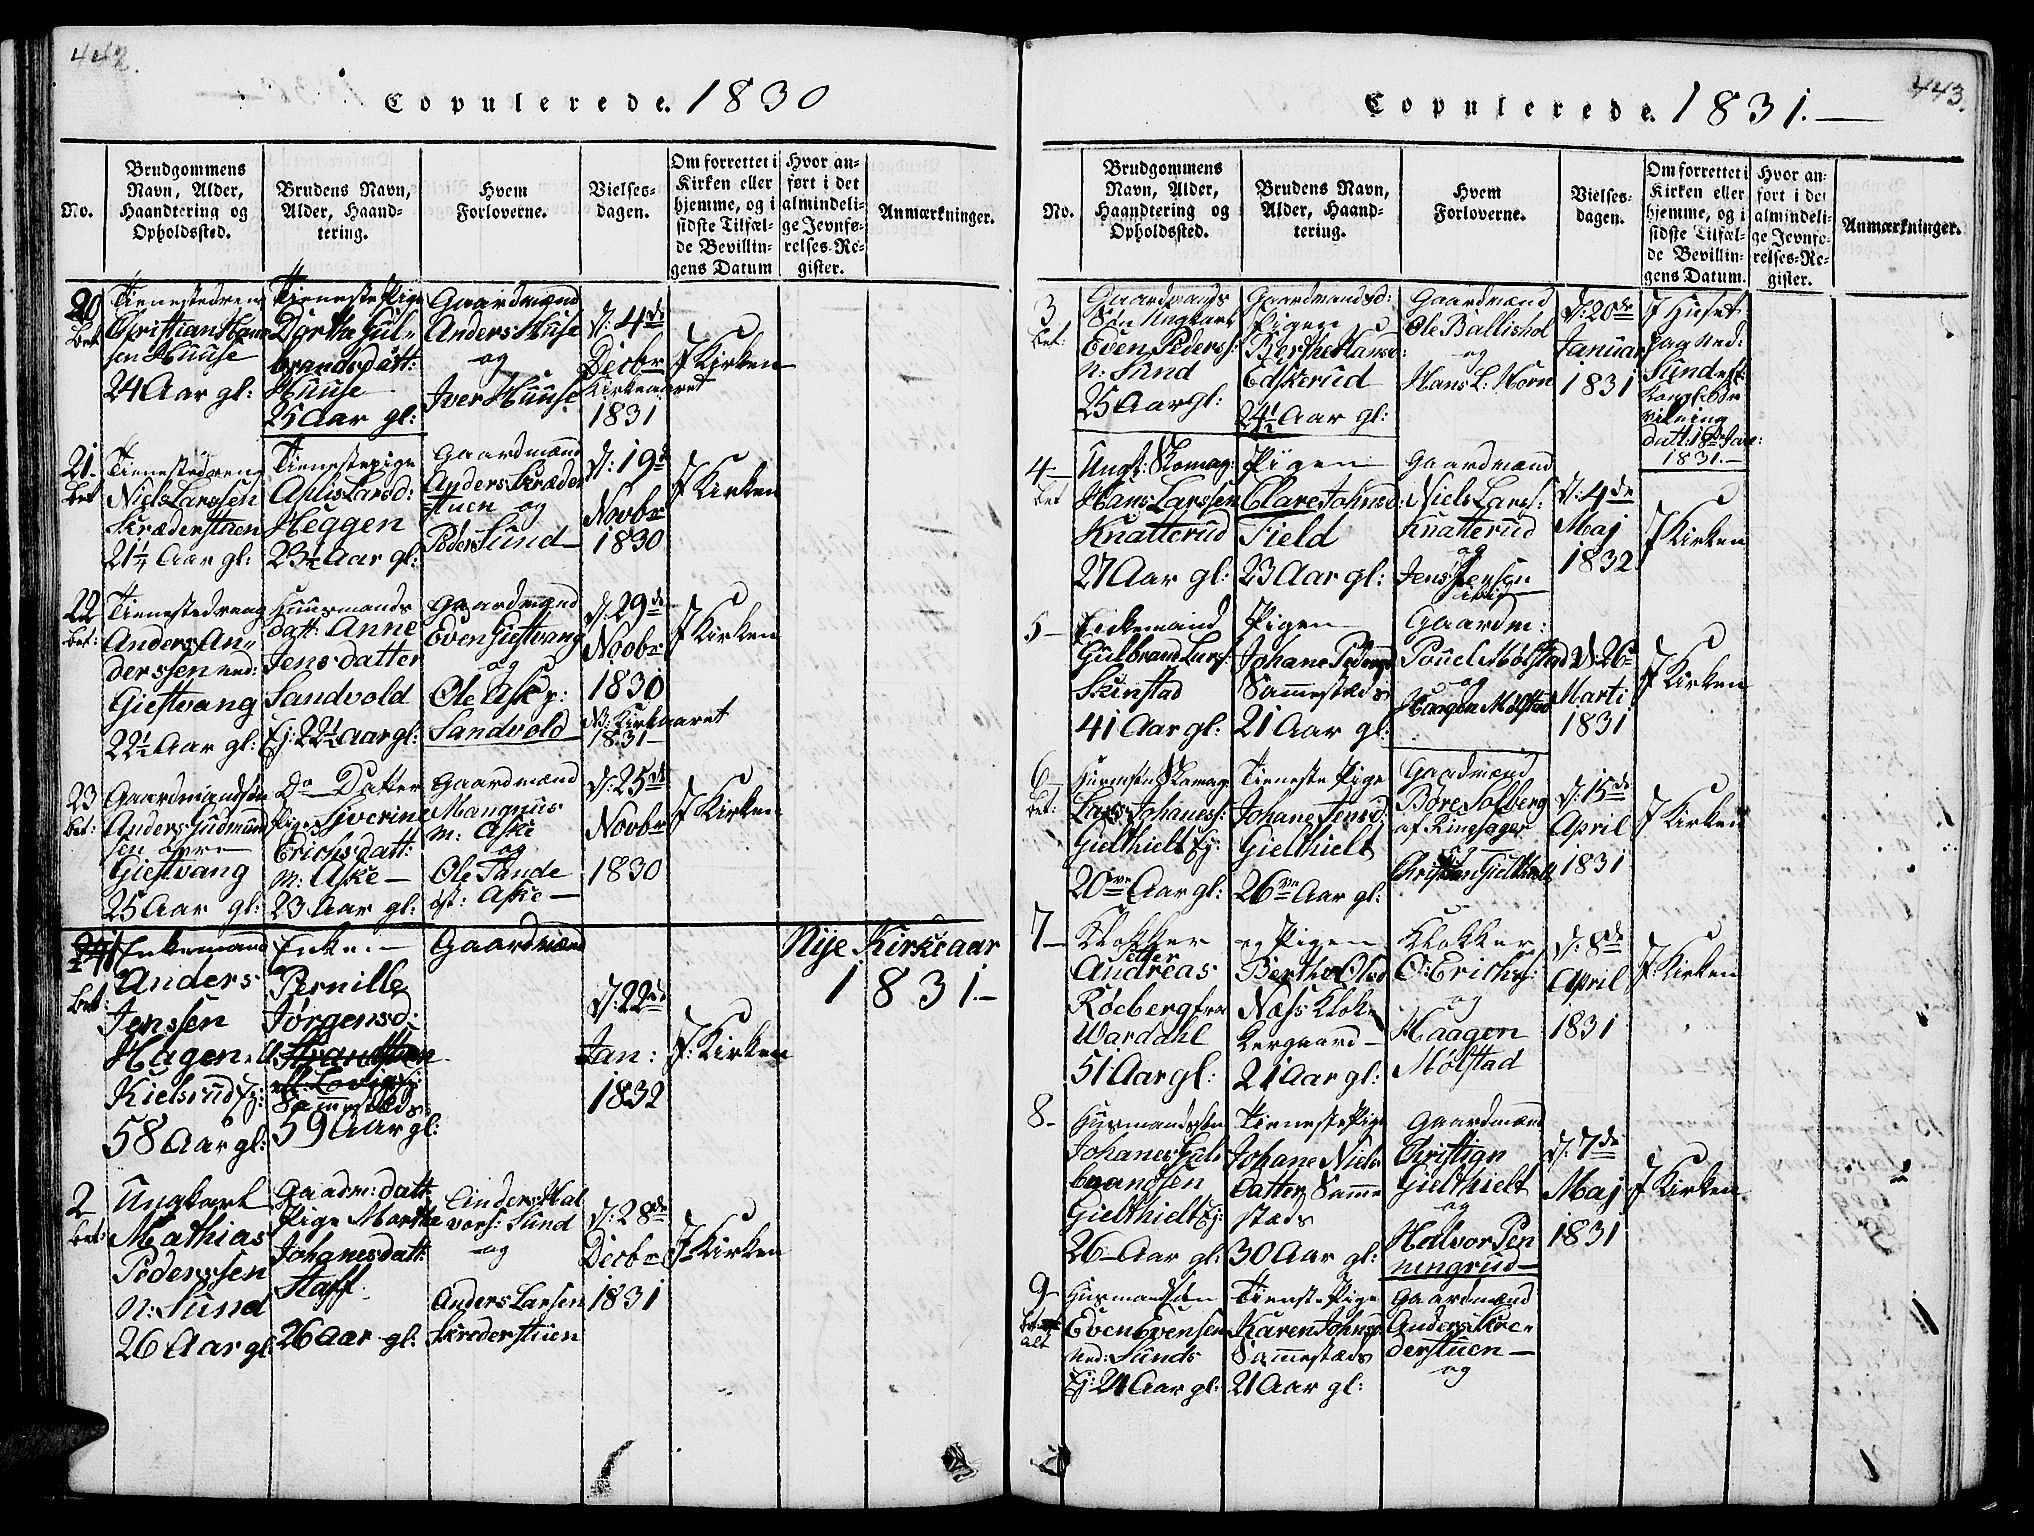 442.
Copulerede. 1830
No.
Brudgommens
Navn, Alder,
Haandtering og
Opholdssted.
Brudens Navn,
Alder, Haand-
tering.
Hvem
Forloverne.
Vielses-
dagen.
Om forrettet i
Kirken eller
hjemme, og i
sidste Tilfæl-
de Bevillin-
gens Datum
Hvor an-
ført i det
almindeli-
ge Jevnfø-
relses-Re-
gister.
Anmærkninger.
20
bet
Tienestedreng
Christian Han
sen Huuse
24 Aar gl:
Tieneste Pige
Dorthe Gul-
brandsdatt:
Huuse
25 Aar gl:
Gaardmænd
Anders Huse
og
Iver Huuse
D: 4de
Decbr
Kirkeaaret
1831
I Kirken
21.
bet
Tienestedreng
Niels Larssen
Skræderstuen
21 1/4 Aar gl:
Tienestepige
Aplis Larsd:
Heggen
Gaardmænd
Anders Skræder
stuen og
Peder Sund
D: 19de
Novbr
1830
I Kirken
22
bet:
Tienestedreng
Anders An-
derssen ned:
Giestvang
22 1/2 Aar gl:
Huusmands
datt: Anne
Jensdatter
Sandvold
Ej: 22 1/2 Aar gl:
Gaardmænd
Even Giestvang
og
Ole Aske p:
Sandvold
D: 29de
Novbr
1830
NB: Kirkeaaret
1831
I Kirken
23
bet:
Gaardmandsøn
Anders Gudmund
sen øvre
Giestvang
25 Aar gl:
Do Datter
Pige Siverine
Erichsdatt:
m: Aske
23 Aar gl:
Gaardmænd
Mangnus
m: Aske
og
Ole Sande
øst: Aske
D: 25de
Novbr
1830
I Kirken
Nye Kirkeaar
1831.
bet:
Enkemand
Anders
Jenssen
Hagen
Kielsrud Ej:
58 Aar gl:
Enke
Pernille
Jørgensd:
Sammesteds
59 Aar gl:
Gaardmænd
D: 22de
Jan:
1832
I: Kirken
2
bet:
Ungkarl
Mathias
Pederssen
n: Sund
26 Aar gl:
Gaardm: datt:
Pige Marthe
Johanesdatt:
Staff
26 Aar gl:
Anders Hal
vors: Sund
og
Anders Larsen
Skrederstuen
D: 28de
Decbr
1831
I Kirken
443.
Copulerede. 1831.
No.
Brudgommens
Navn, Alder,
Haandtering og
Opholdssted.
Brudens Navn,
Alder, Haand-
tering.
Hvem
Forloverne.
Vielses-
dagen.
Om forrettet i
Kirken eller
hjemme, og i
sidste Tilfæl-
de Bevillin-
gens Datum.
Hvor an-
ført i det
almindeli-
ge Jevnfø-
relses-Re-
gister.
Anmærkninger.
3
bet:
Gaardmands
Søn Ungkarl
Even Peders:
n: Sund
25 Aar gl:
Gaardmandsd:
Pigen
Berthe Hansd:
Edskerud
24 1/2 Aar gl:
Gaardmænd
Ole Ballishol
og
Hans L: Horn
D: 20de
Januar
1831
I Huset
paa ned:
Sund
Kongl: Be
vilning
datt: 18de Jan:
1831.
4
bet
Ungk: Skomag:
Hans Larssen
Knatterud
27 Aar gl:
Pigen
Clare Johnsd:
Field
23 Aar gl:
Gaardmænd
Niels Lars:
Knatterud
og
Jens Jensen
ibid
D: 4de
Maj
1832
I Kirken
5
Enkemand
Gulbrand Lars:
Skinstad
41 Aar gl:
Pigen
Johane Pedersd
Sammesteds
21 Aar gl:
Gaardm:
Pouel Mølstad
og
Haagen Mølstad
D: 26
Marti
1831
I Kirken
6
bet:
Husmsøn Skomag
Lars Johanes:
Gielthielt Ej:
20ve Aar gl:
Tieneste Pige
Johane Jensd:
Gielthielt
26 Aar gl:
Gaardmænd
Børe Solberg
af Ringsager
og
Christian Gielthielt
D: 15de
April
1831
I Kirken
7
Klokker
Petter
Andreas
Røeberg fra
Wardahl
51 Aar gl:
og Pigen
Berthe Olsd
Næss Klok-
kergaard
21 Aar gl:
Klokker
O: Erichs:
og
Haagen
Mølstad
D: 8de
April
1831
I Kirken
8
Husmandssøn
Johanes Gul
brandsen
Gielthielt Ej:
26 Aar gl:
Tieneste Pige
Johane Niels
datter Samme
steds
30 Aar gl:
Gaardmænd
Christian
Gielthielt
og
Halvor Pen
ningrud
D: 7de
Maj
1831
I Kirken
9
alt
Husmandsøn
Even Evensen
ned: Sunds
Ej: 24 Aar gl:
Tieneste Pige
Karen Johnsd:
Sammesteds
21 Aar gl:
Gaardmænd
Anders Skre-
derstuen
og